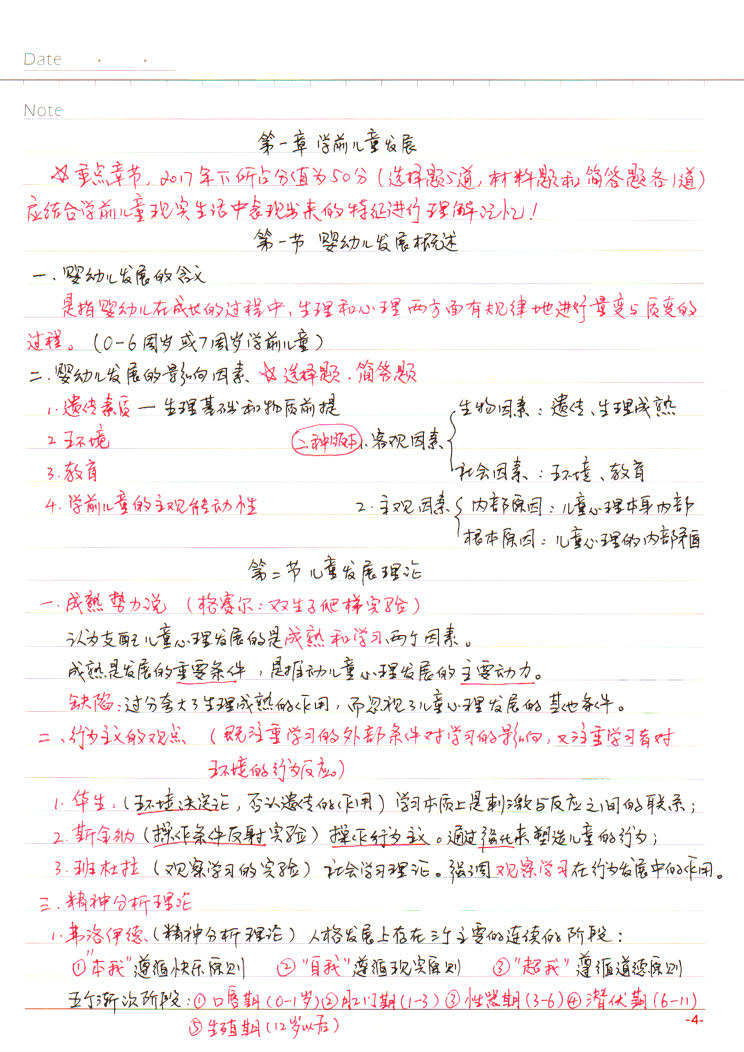 Date
Note
第一章 学前儿童发展
☆重点章节,2017年下所占分值为50分(选择题5道,材料题和简答题各1道)
应结合学前儿童现实生活中表现出来的特征进行理解记忆!
第一节 婴幼儿发展概述
一、婴幼儿发展的含义
是指婴幼儿在成长的过程中,生理和心理两方面有规律地进行量变与质变的
过程。(0-6周岁或7周岁学前儿童)
二、婴幼儿发展的影响因素 ☆选择题、简答题
1.遗传素质—生理基础和物质前提
2.环境
3.教育
4.学前儿童的主观能动性
二种版本 1.客观因素
生物因素:遗传、生理成熟
社会因素:环境、教育
2.主观因素
内部原因:儿童心理本身内部
根本原因:儿童心理的内部矛盾
第二节 儿童发展理论
一、成熟势力说 (格赛尔:双生子爬梯实验)
认为支配儿童心理发展的是成熟和学习两个因素。
成熟是发展的重要条件,是推动儿童心理发展的主要动力。
缺陷:过分夸大了生理成熟的作用,而忽视了儿童心理发展的其他条件。
二、行为主义的观点 (既注重学习的外部条件对学习的影响,又注重学习者对
环境的行为反应。)
1.华生:(环境决定论,否认遗传的作用)学习本质上是刺激与反应之间的联系;
2.斯金纳(操作条件反射实验)操作行为主义。通过强化来塑造儿童的行为;
3.班杜拉(观察学习的实验)社会学习理论。强调观察学习在行为发展中的作用。
三、精神分析理论
1.弗洛伊德(精神分析理论)人格发展上存在三个主要的连续的阶段:
①"本我"遵循快乐原则 ②"自我"遵循现实原则 ③"超我"遵循道德原则
五个渐次阶段:①口唇期(0-1岁)②肛门期(1-3)③性器期(3-6)④潜伏期(6-11)
⑤生殖期(12岁以后)
-4-